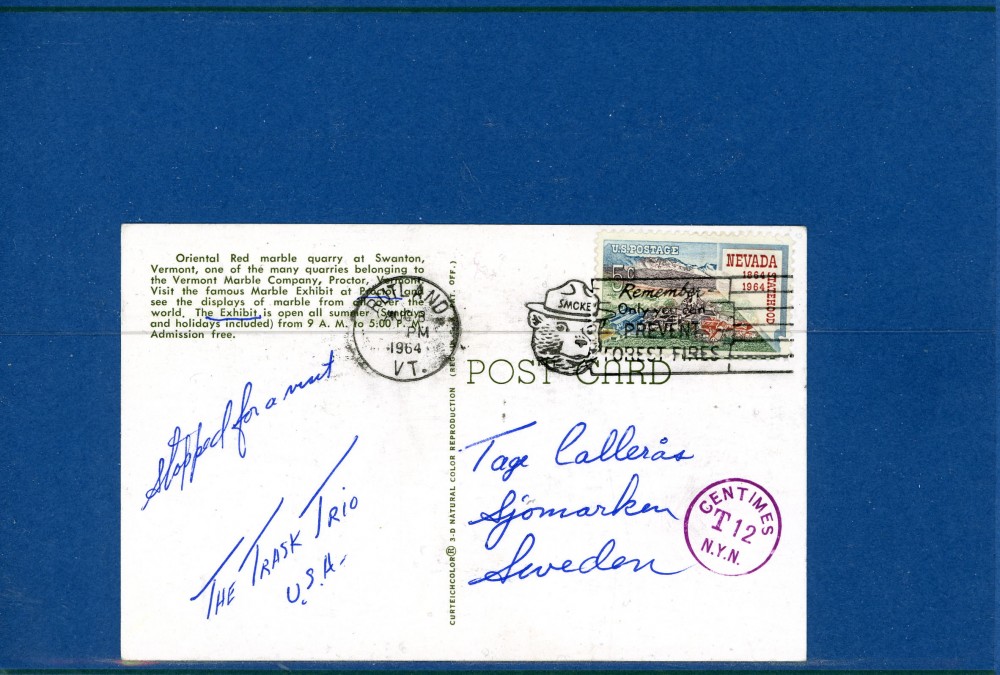 Oriental Red marble quarry at Swanton,
Vermont, one of the many quarries belonging to
the Vermont Marble Company, Proctor, Vermont.
Visit the famous Marble Exhibit at Proctor and
see the displays of marble from all over the
world. The Exhibit is open all summer (Sundays
and holidays included) from 9 A. M. to 5:00 P. M.
Admission free.
RUTLAND
PM
1964
VT.
SMOKEY
Remember
Only you can
PREVENT
FOREST FIRES
U.S. POSTAGE
5c
NEVADA
1864
1964
STATEHOOD
POST CARD
Stopped for a visit
THE TRASK TRIO
U.S.A.
CURTEICHCOLOR® 3-D NATURAL COLOR REPRODUCTION (REG. U.S. PAT. OFF.)
Tage Callerås
Sjömarken
Sweden
CENTIMES
T 12
N.Y.N.